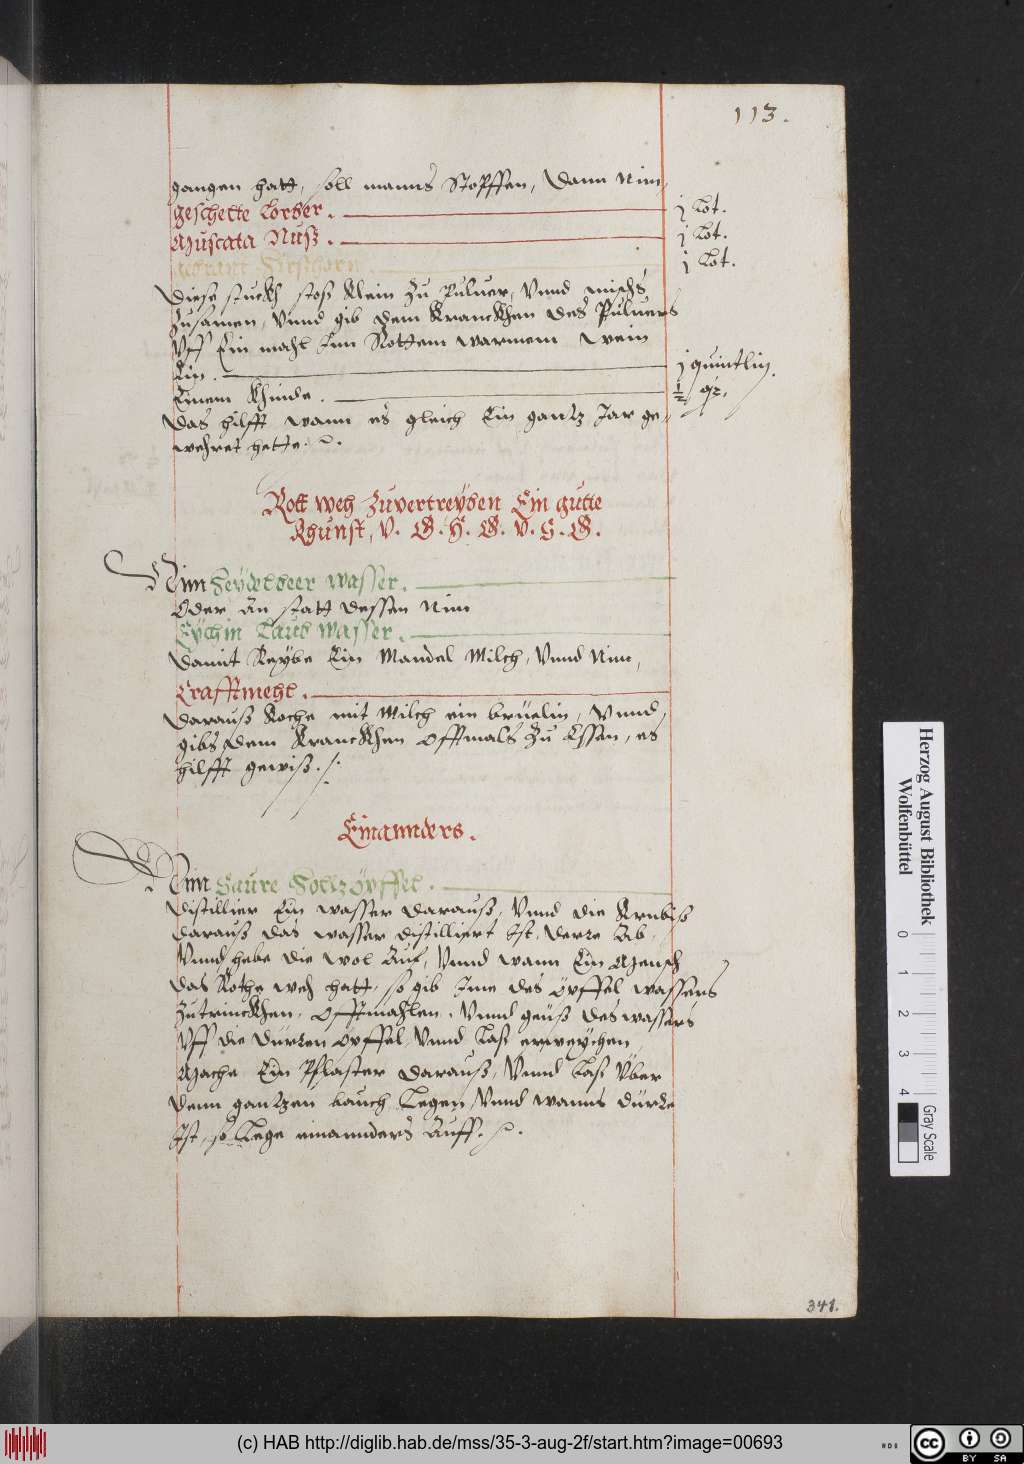 113.
gangen hatt, soll manns Stopffen, Dann Nim,
geschelte Lorber. j Lot.
Muscata Nusß. j Lot.
gebrant Hirschorn. j Lot.
Diese stuckh stos Klein Zu Puluer, Vnnd mischs
Zusamen, Vnnd gib dem Kranckhen des Puluers
Vff Ein mahl Inn Rottem warmem wein
Ein. j quintlin.
Einem Khinde. ½ qz.
Das hilfft wann es gleich Ein gantz Jar ge=
wehret hette.
Rott weh Zuvertreyben Ein gutte
Khunst, V. G. H. G. V. S. G.
Nim Heydelbeer wasser.
Oder An statt dessen Nim
Eychin Laub wasser.
Damit Reybe Ein Mandel Milch, Vnnd Nim,
Crafftmehl.
Darauß Koche mit Milch ein brüelin, Vnnd
gibs dem Kranckhen offtmals Zu Essen, es
hilfft gewiß.
Einannders.
Nim Saure Holtzöpffel.
Distillier Ein wasser darauß, Vnnd die
darauß das wasser distilliert Ist, derre Ab,
Vnnd hebe die wol Auf, Vnnd wann Ein Mensch
das Rothe weh hatt, so gib Ime des öpffel wassers
Zutrinckhen, offtmahlen, Vnnd geüß des wassers
Vff die dürren öpffel, Vnnd Laß erweychen,
Mache Ein Pflaster darauß, Vnnd Laß Vber
denn gantzen bauch Legen, Vnnd wanns dürre
Ist, so Lege einannders Auff.
341.
Herzog August Bibliothek
Wolfenbüttel
0 1 2 3 4
Gray Scale
(c) HAB http://diglib.hab.de/mss/35-3-aug-2f/start.htm?image=00693
cc BY SA